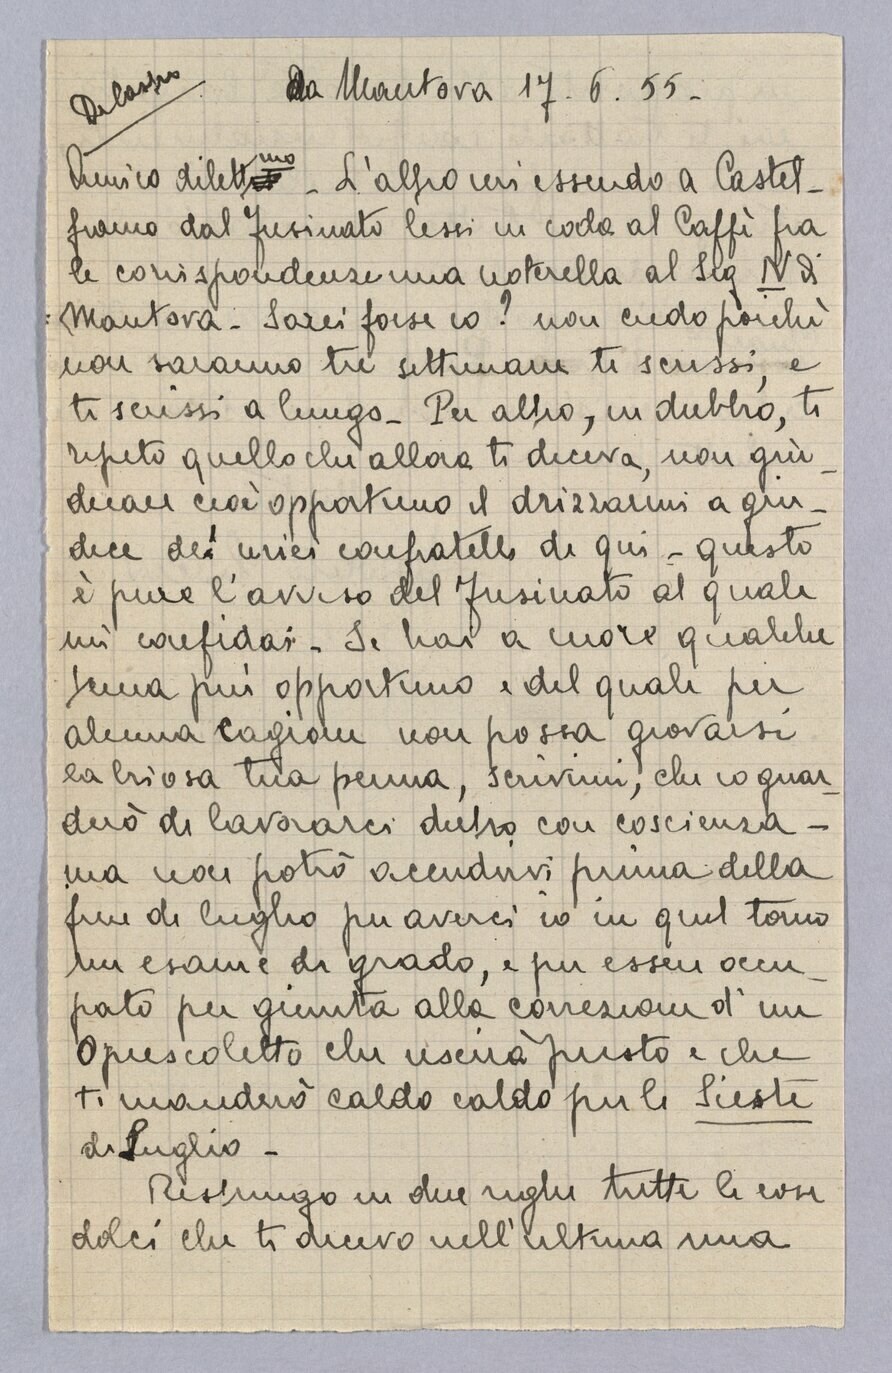 Da Mantova 17. 6. 55 -
Amico dilettmo - L'altro ieri essendo a Castel-
franco dal Fusinato lessi in coda al Caffè fra
le corrispondenze una noterella al Sig N di
Mantova - Sarei forse io? non credo poichè
non saranno tre settimane ti scrissi, e
ti scrissi a lungo - Per altro, in dubbio, ti
ripeto quello che allora ti diceva, non giu-
dicare cioè opportuno il drizzarmi a giu-
dice dei miei confratelli di qui - questo
è pure l'avviso del Fusinato al quale
mi confidai - Se hai a cuore qualche
tema più opportuno e del quale per
alcuna cagione non possa giovarsi
la briosa tua penna, scrivimi, che io guar-
derò di lavorarci dietro con coscienza -
ma non potrò accudirvi prima della
fine di luglio per averci io in quel torno
un esame di grado, e per essere occu-
pato per giunta alla correzione d'un
Opuscoletto che uscirà presto e che
ti manderò caldo caldo per le Sieste
di Luglio -
Restringo in due righe tutte le cose
dolci che ti dicevo nell'ultima mia